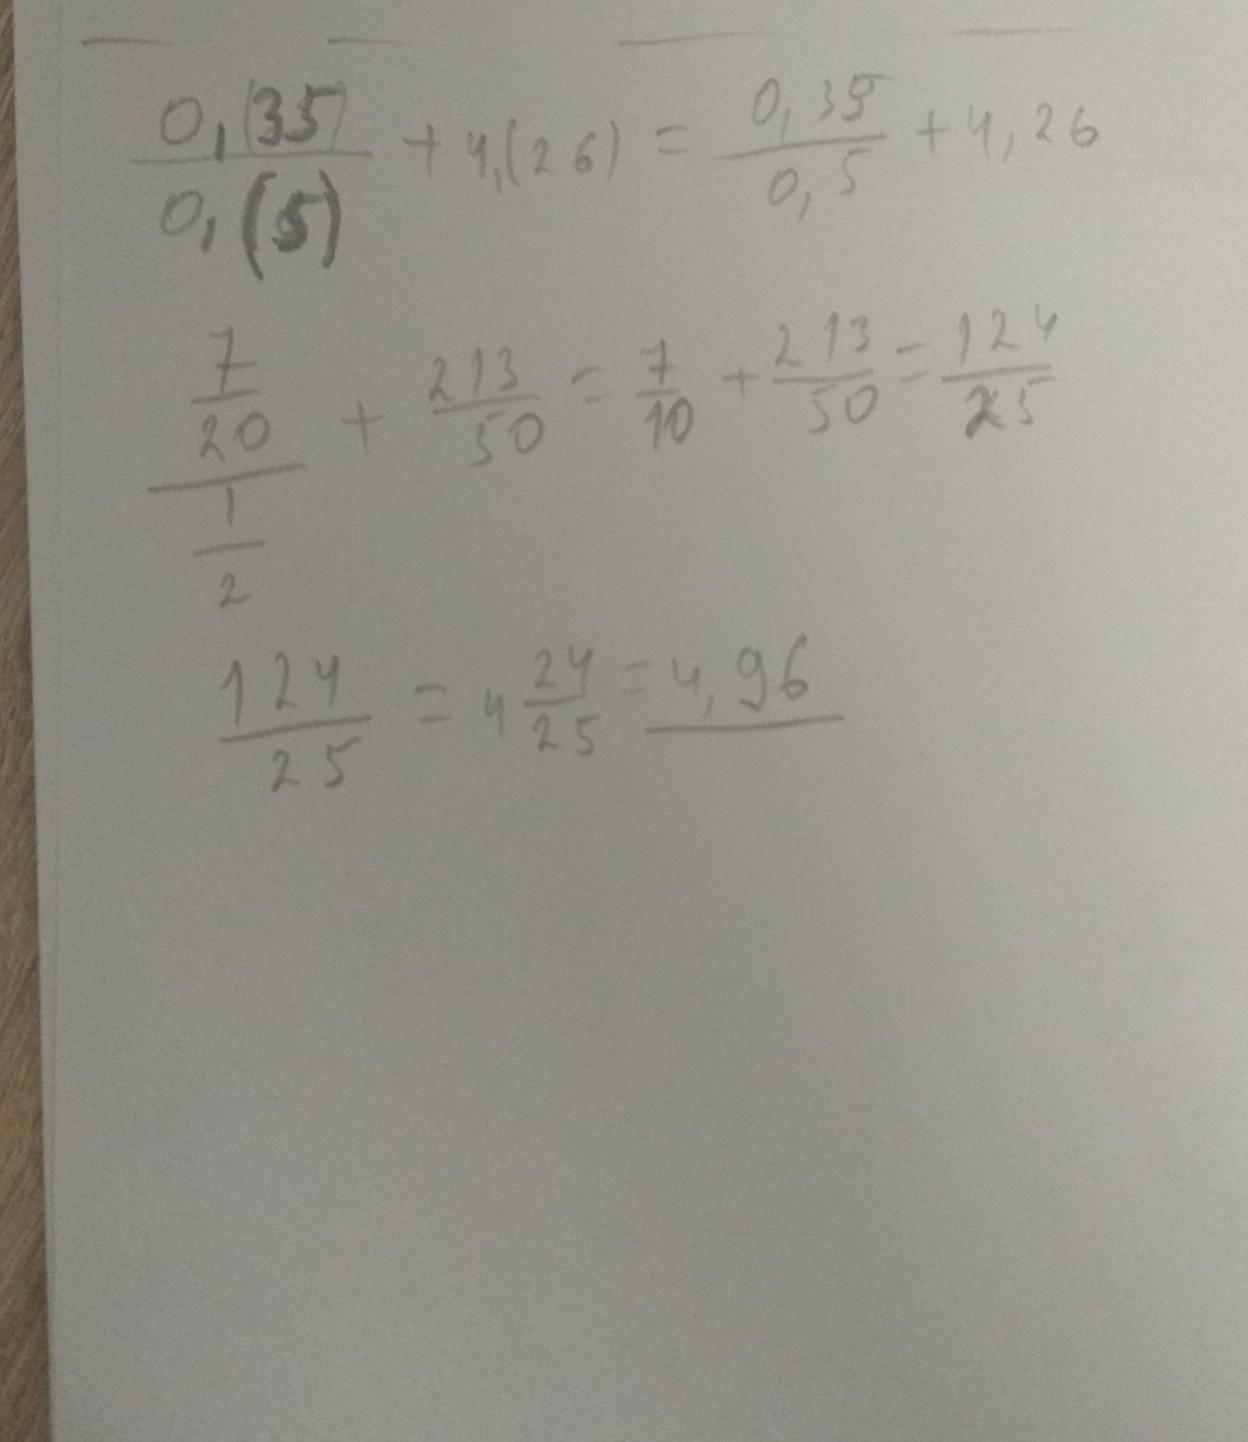 0,(35)/0,(5) + 4,(26) = 0,35/0,5 + 4,26
7/20 / 1/2 + 213/50 = 7/10 + 213/50 = 124/25
124/25 = 4 24/25 = 4,96